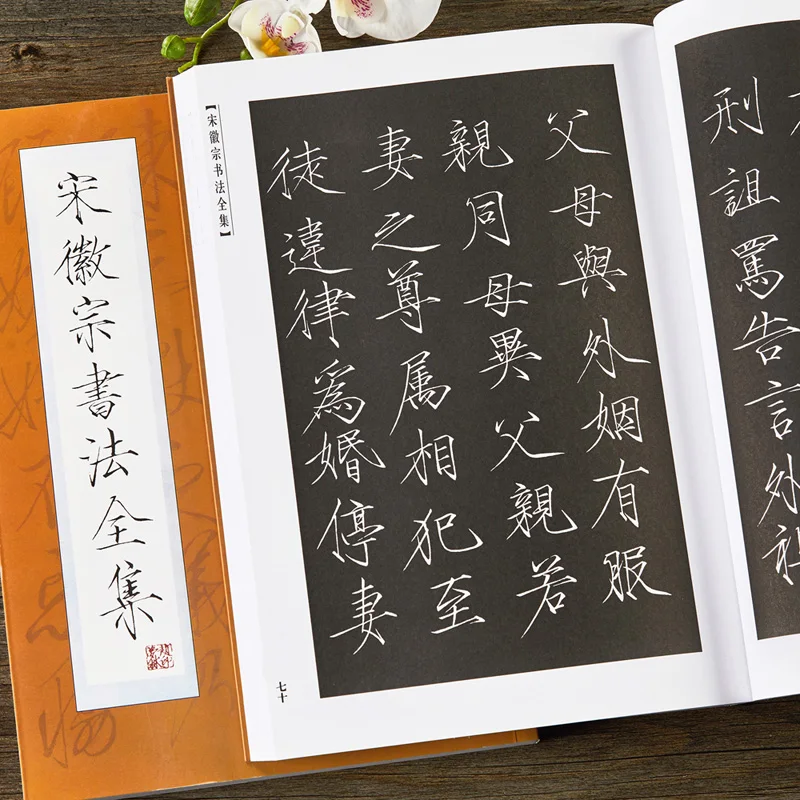 宋徽宗書法全集
【宋徽宗书法全集】
刑詛罵告言外
父母與外姻有服
親同母異父親若
妻之尊属相犯至
徒違律爲婚停妻
七十